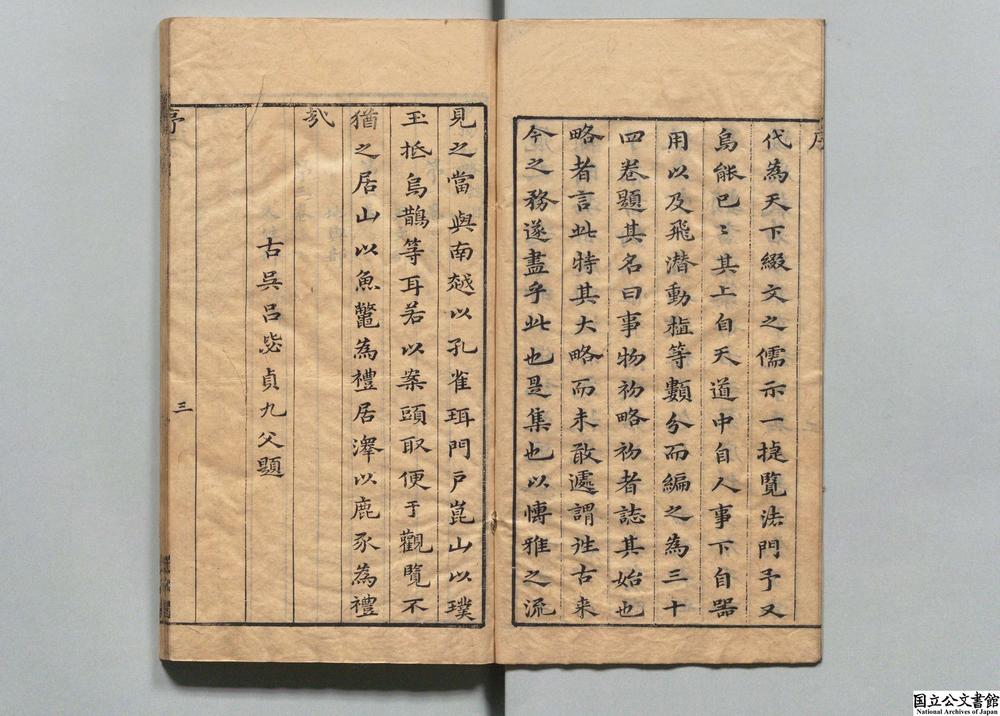 序
代為天下綴文之儒示一捷覽法門予又
烏能已〻其上自天道中自人事下自器
用以及飛潜動植等數分而編之為三十
四卷題其名曰事物初略初者誌其始也
略者言此特其大略而未敢遽謂往古来
今之務遂盡乎此也是集也以愽雅之流
見之當與南越以孔雀珥門戶崑山以璞
玉抵烏鵲等耳若以案頭取便于觀覽不
猶之居山以魚鼈為禮居澤以鹿豕為禮
㢤
古吳呂毖貞九父題
序
三
国立公文書館
National Archives of Japan